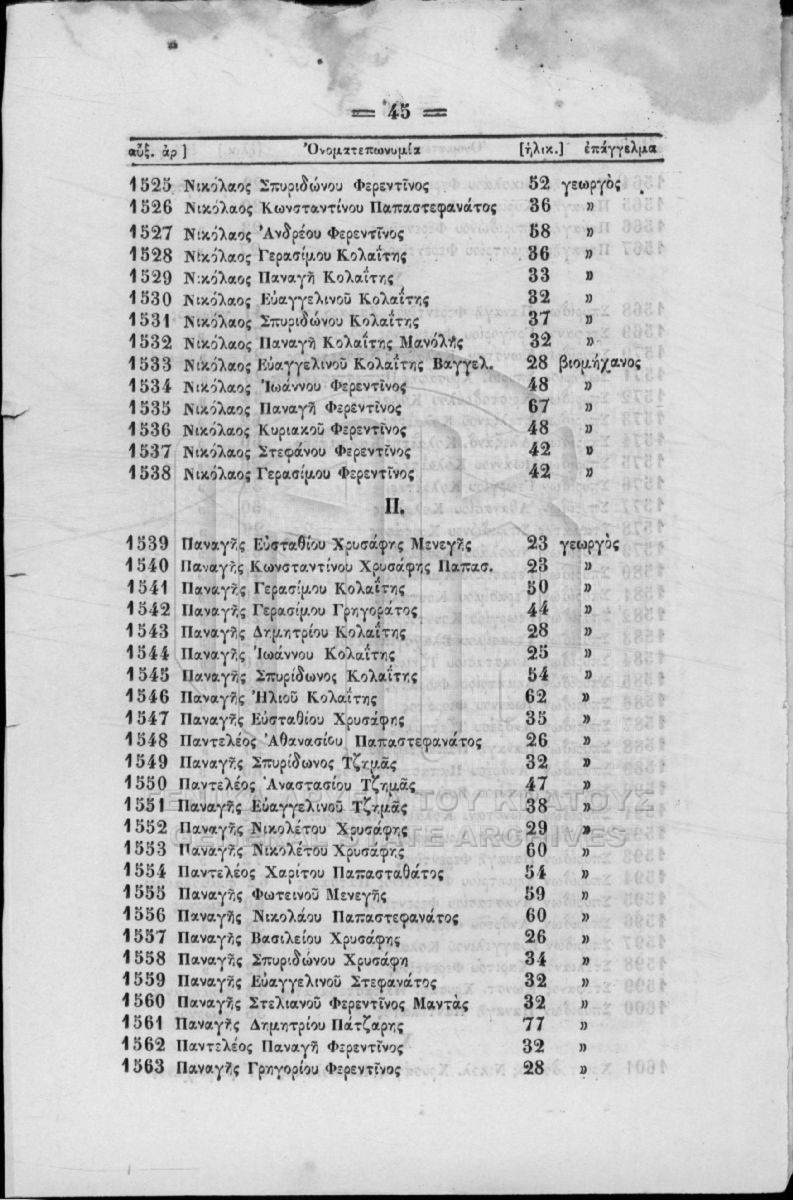 = 45 =
αὔξ. ἀρ ] Ὀνοματεπωνυμία [ἡλικ.] ἐπάγγελμα
1525 Νικόλαος Σπυριδώνου Φερεντῖνος 52 γεωργὸς
1526 Νικόλαος Κωνσταντίνου Παπαστεφανάτος 36 »
1527 Νικόλαος Ἀνδρέου Φερεντῖνος 58 »
1528 Νικόλαος Γερασίμου Κολαΐτης 36 »
1529 Νικόλαος Παναγῆ Κολαΐτης 33 »
1530 Νικόλαος Εὐαγγελινοῦ Κολαΐτης 32 »
1531 Νικόλαος Σπυριδώνου Κολαΐτης 37 »
1532 Νικόλαος Παναγῆ Κολαΐτης Μανόλης 32 »
1533 Νικόλαος Εὐαγγελινοῦ Κολαΐτης Βαγγελ. 28 βιομήχανος
1534 Νικόλαος Ἰωάννου Φερεντῖνος 48 »
1535 Νικόλαος Παναγῆ Φερεντῖνος 67 »
1536 Νικόλαος Κυριακοῦ Φερεντῖνος 48 »
1537 Νικόλαος Στεφάνου Φερεντῖνος 42 »
1538 Νικόλαος Γερασίμου Φερεντῖνος 42 »
Π.
1539 Παναγῆς Εὐσταθίου Χρυσάφης Μενεγῆς 23 γεωργὸς
1540 Παναγῆς Κωνσταντίνου Χρυσάφης Παπασ. 23 »
1541 Παναγῆς Γερασίμου Κολαΐτης 50 »
1542 Παναγῆς Γερασίμου Γρηγοράτος 44 »
1543 Παναγῆς Δημητρίου Κολαΐτης 28 »
1544 Παναγῆς Ἰωάννου Κολαΐτης 25 »
1545 Παναγῆς Σπυρίδωνος Κολαΐτης 54 »
1546 Παναγῆς Ἠλιοῦ Κολαΐτης 62 »
1547 Παναγῆς Εὐσταθίου Χρυσάφης 35 »
1548 Παντελέος Ἀθανασίου Παπαστεφανάτος 26 »
1549 Παναγῆς Σπυρίδωνος Τζημᾶς 32 »
1550 Παντελέος Ἀναστασίου Τζημᾶς 47 »
1551 Παναγῆς Εὐαγγελινοῦ Τζημᾶς 38 »
1552 Παναγῆς Νικολέτου Χρυσάφης 29 »
1553 Παναγῆς Νικολέτου Χρυσάφης 60 »
1554 Παντελέος Χαρίτου Παπασταθάτος 54 »
1555 Παναγῆς Φωτεινοῦ Μενεγῆς 59 »
1556 Παναγῆς Νικολάου Παπαστεφανάτος 60 »
1557 Παναγῆς Βασιλείου Χρυσάφης 26 »
1558 Παναγῆς Σπυριδώνου Χρυσάφη 34 »
1559 Παναγῆς Εὐαγγελινοῦ Στεφανάτος 32 »
1560 Παναγῆς Στελιανοῦ Φερεντῖνος Μαντὰς 32 »
1561 Παναγῆς Δημητρίου Πάτζαρης 77 »
1562 Παντελέος Παναγῆ Φερεντῖνος 32 »
1563 Παναγῆς Γρηγορίου Φερεντῖνος 28 »